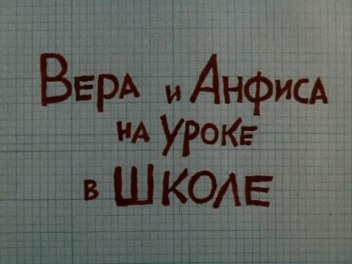 Вера и Анфиса
на уроке
в школе